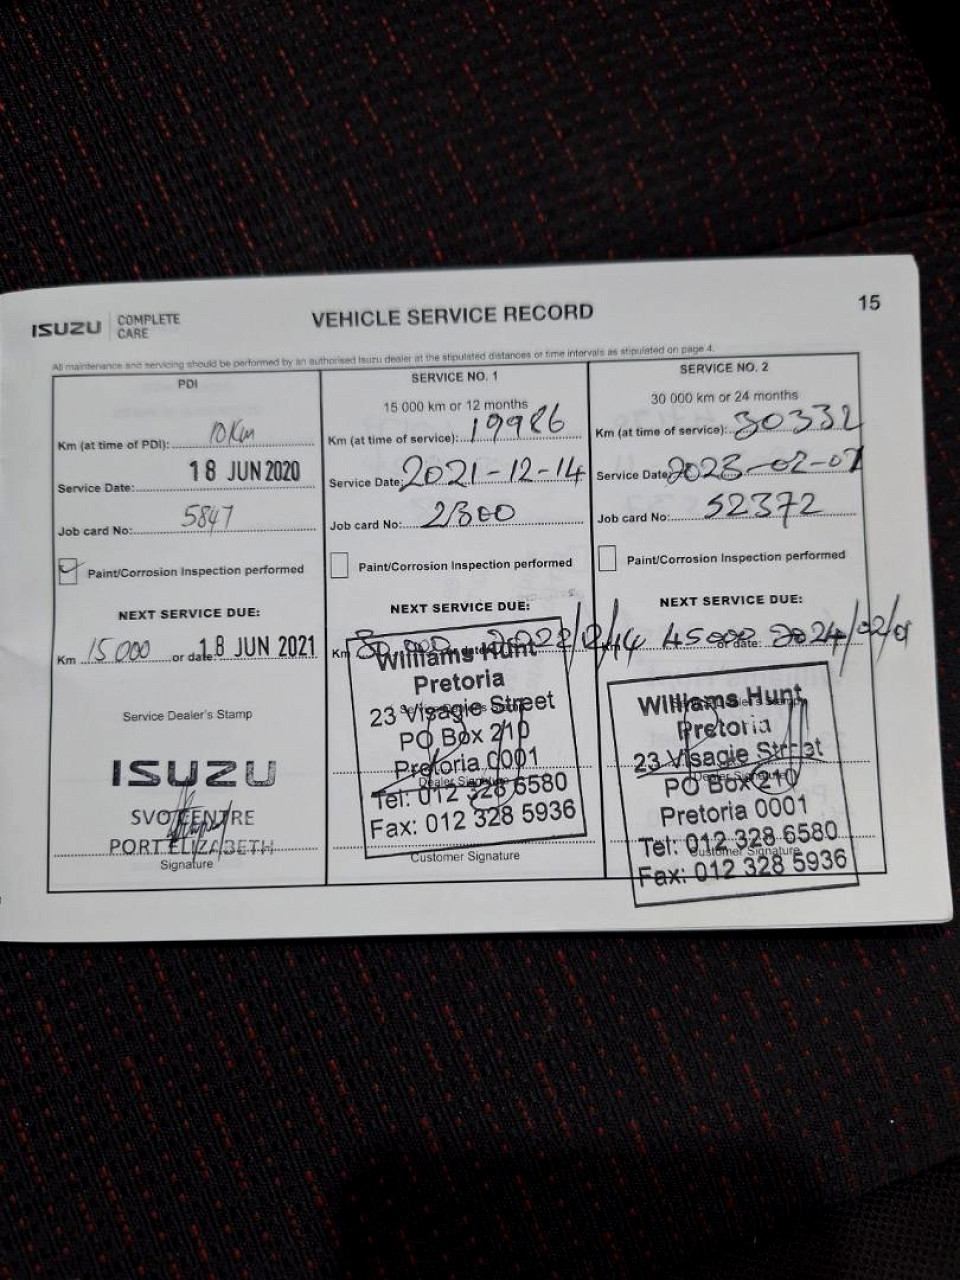 ISUZU COMPLETE CARE
VEHICLE SERVICE RECORD
15
All maintenance and servicing should be performed by an authorised Isuzu dealer at the stipulated distances or time intervals as stipulated on page 4.
PDI
Km (at time of PDI): 10Km
Service Date: 18 JUN 2020
Job card No: 5847
Paint/Corrosion Inspection performed
NEXT SERVICE DUE:
Km 15 000 or date: 18 JUN 2021
Service Dealer's Stamp
ISUZU
SVO CENTRE
PORT ELIZABETH
Signature
SERVICE NO. 1
15 000 km or 12 months
Km (at time of service): 19986
Service Date: 2021-12-14
Job card No: 2300
Paint/Corrosion Inspection performed
NEXT SERVICE DUE:
Km
Williams Hunt
Pretoria
23 Visagie Street
PO Box 210
Pretoria 0001
Dealer Signature
Tel: 012 328 6580
Fax: 012 328 5936
Customer Signature
SERVICE NO. 2
30 000 km or 24 months
Km (at time of service): 30332
Service Date: 2023-02-01
Job card No: 52372
Paint/Corrosion Inspection performed
NEXT SERVICE DUE:
45000 or date: 2024/02/01
Williams Hunt
Pretoria
23 Visagie Street
Dealer Signature
PO Box 210
Pretoria 0001
Tel: 012 328 6580
Customer Signature
Fax: 012 328 5936